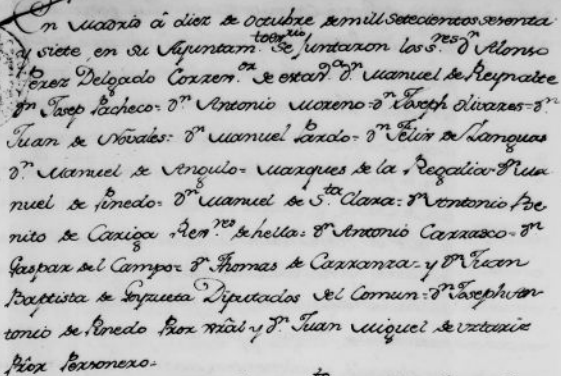 En Madrid â diez de octubre de mill setecientos sesenta
y siete en su Ayuntam.to Se Juntaron los s.res dn Alonso
Perez Delgado Corren.or de esta dn Manuel de Reynalte
dn Josep Pacheco= dn Antonio Moreno= dn Joseph Olivares= dn
Juan de Novales= dn Manuel Pardo= dn Felix de Llanguas
dn Manuel de Angulo= Marques de la Regalia= dn Ma
nuel de Pinedo= dn Manuel de S.ta Clara= dn Antonio Be
nito de Cariga de hella= dn Antonio Carrasco= dn
Gaspar del Campo= dn Thomas de Carranza= y dn Juan
Baptista de Goyzueta Diputados del Comun= dn Joseph An
tonio de Pinedo Pror y dn Juan Miguel de Vztariz
Pror Personero=